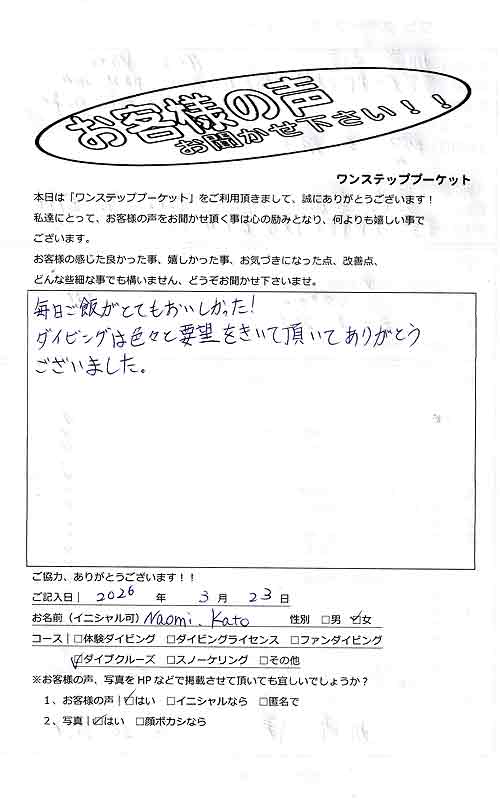 お客様の声
お聞かせ下さい！！
ワンステッププーケット
本日は「ワンステッププーケット」をご利用頂きまして、誠にありがとうございます！
私達にとって、お客様の声をお聞かせ頂く事は心の励みとなり、何よりも嬉しい事で
ございます。
お客様の感じた良かった事、嬉しかった事、お気づきになった点、改善点、
どんな些細な事でも構いません、どうぞお聞かせ下さいませ。
毎日ご飯がとてもおいしかった!
ダイビングは色々と要望をきいて頂いてありがとう
ございました。
ご協力、ありがとうございます！！
ご記入日| 2026 年 3 月 23 日
お名前（イニシャル可）Naomi. Kato 性別 □男 ☑女
コース|□体験ダイビング □ダイビングライセンス □ファンダイビング
☑ダイブクルーズ □スノーケリング □その他
※お客様の声、写真をHPなどで掲載させて頂いても宜しいでしょうか？
1、お客様の声|☑はい □イニシャルなら □匿名で
2、写真|☑はい □顔ボカシなら